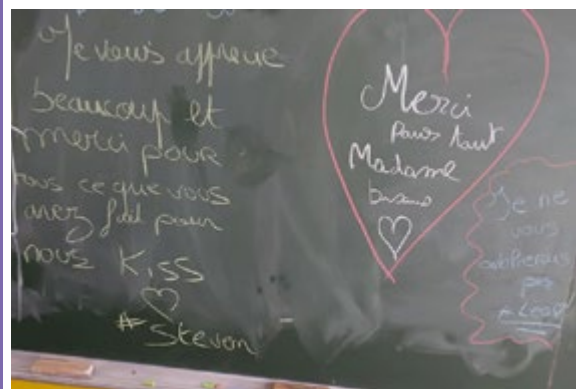 Je vous apprecie
beaucoup et
merci pour
tous ce que vous
avez fait pour
nous Kiss
Steven
Merci
pour tout
Madame
Je ne
vous
oublierais
pas